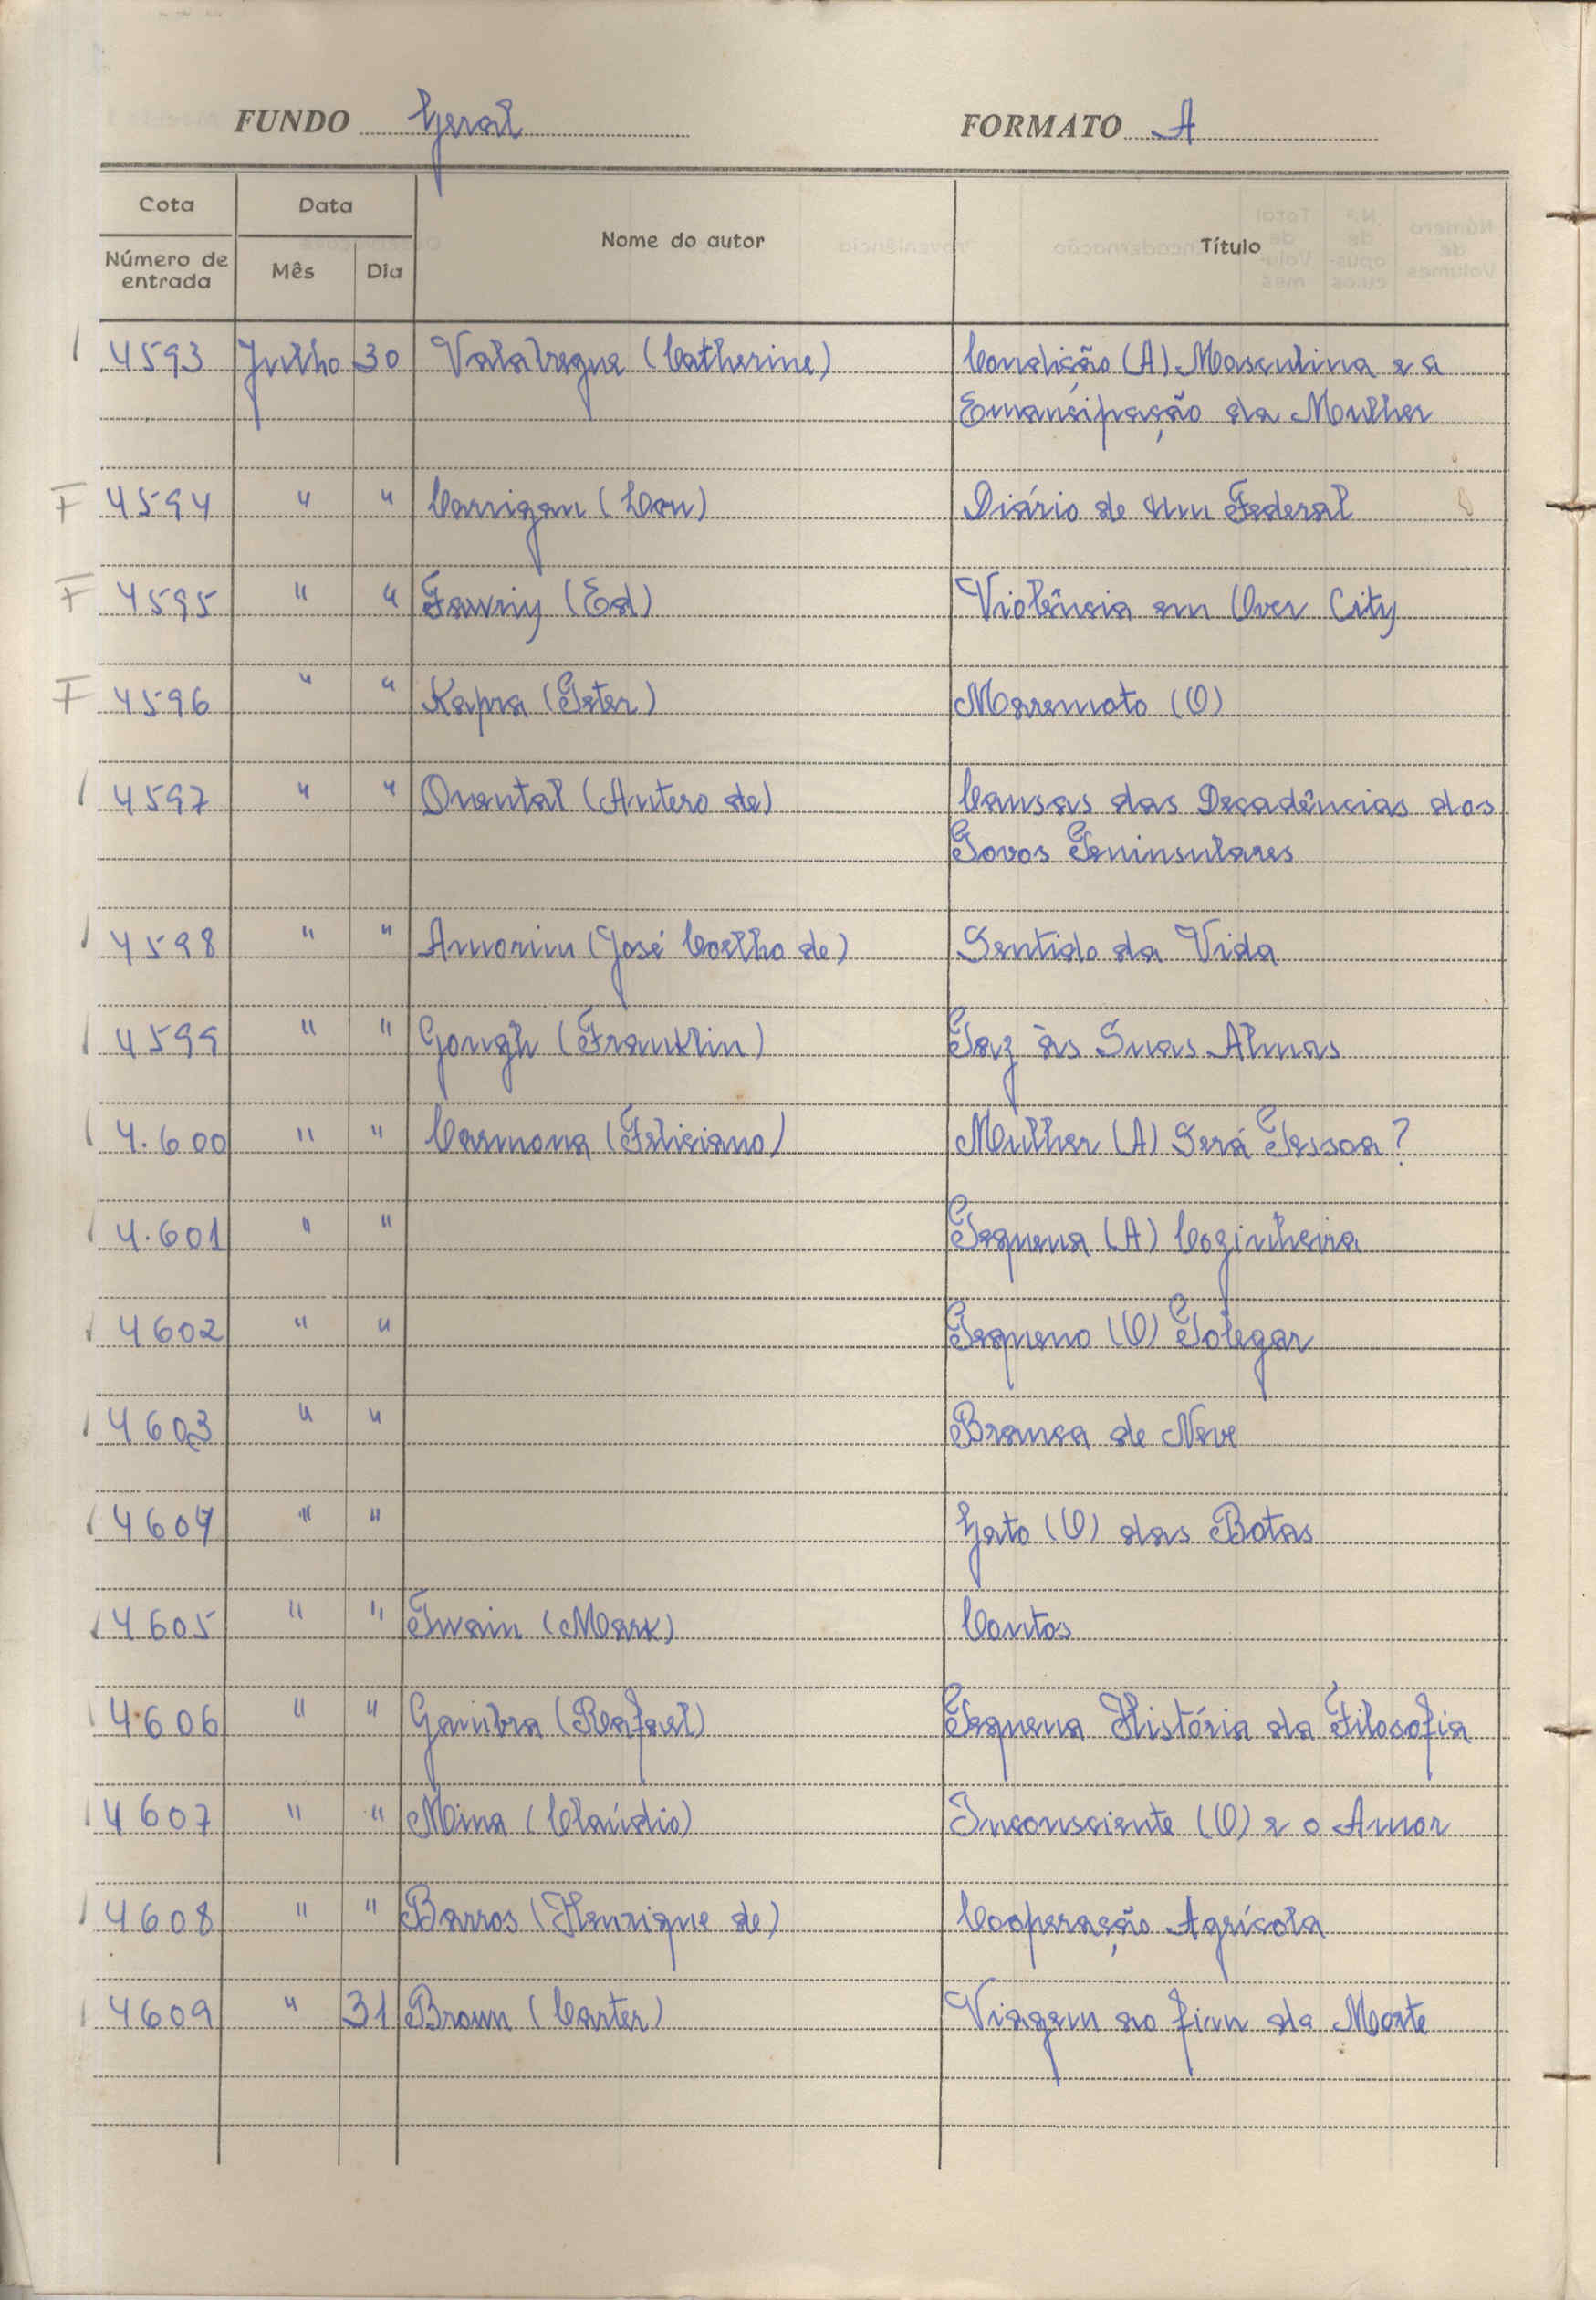 FUNDO Geral FORMATO A
Cota Data Nome do autor Título
Número de entrada Mês Dia
4593 Julho 30 Valabregue (Catherine) Condição (A) Masculina e a
Emancipação da Mulher
F 4594 " " Carrigan (Lou) Diário de Um Federal
F 4595 " " (Ed) Violência em Over City
F 4596 " " Kapra (Peter) Maremoto (O)
4597 " " Quental (Antero de) Causas das Decadências dos
Povos Peninsulares
4598 " " Amorim (José Coelho de) Sentido da Vida
4599 " " Gough (Franklin) Paz às Suas Almas
4.600 " " Carmona (Feliciano) Mulher (A) Será Pessoa?
4.601 " " Pequena (A) Cozinheira
4602 " " Pequeno (O) Polegar
4603 " " Branca de Neve
4604 " " Gato (O) das Botas
4605 " " Twain (Mark) Contos
4.606 " " Gambra (Rafael) Pequena História da Filosofia
4607 " " Mina (Claúdio) Inconsciente (O) e o Amor
4608 " " Barros (Henrique de) Cooperação Agrícola
4609 " 31 Brown (Carter) Viagem ao fim da Morte